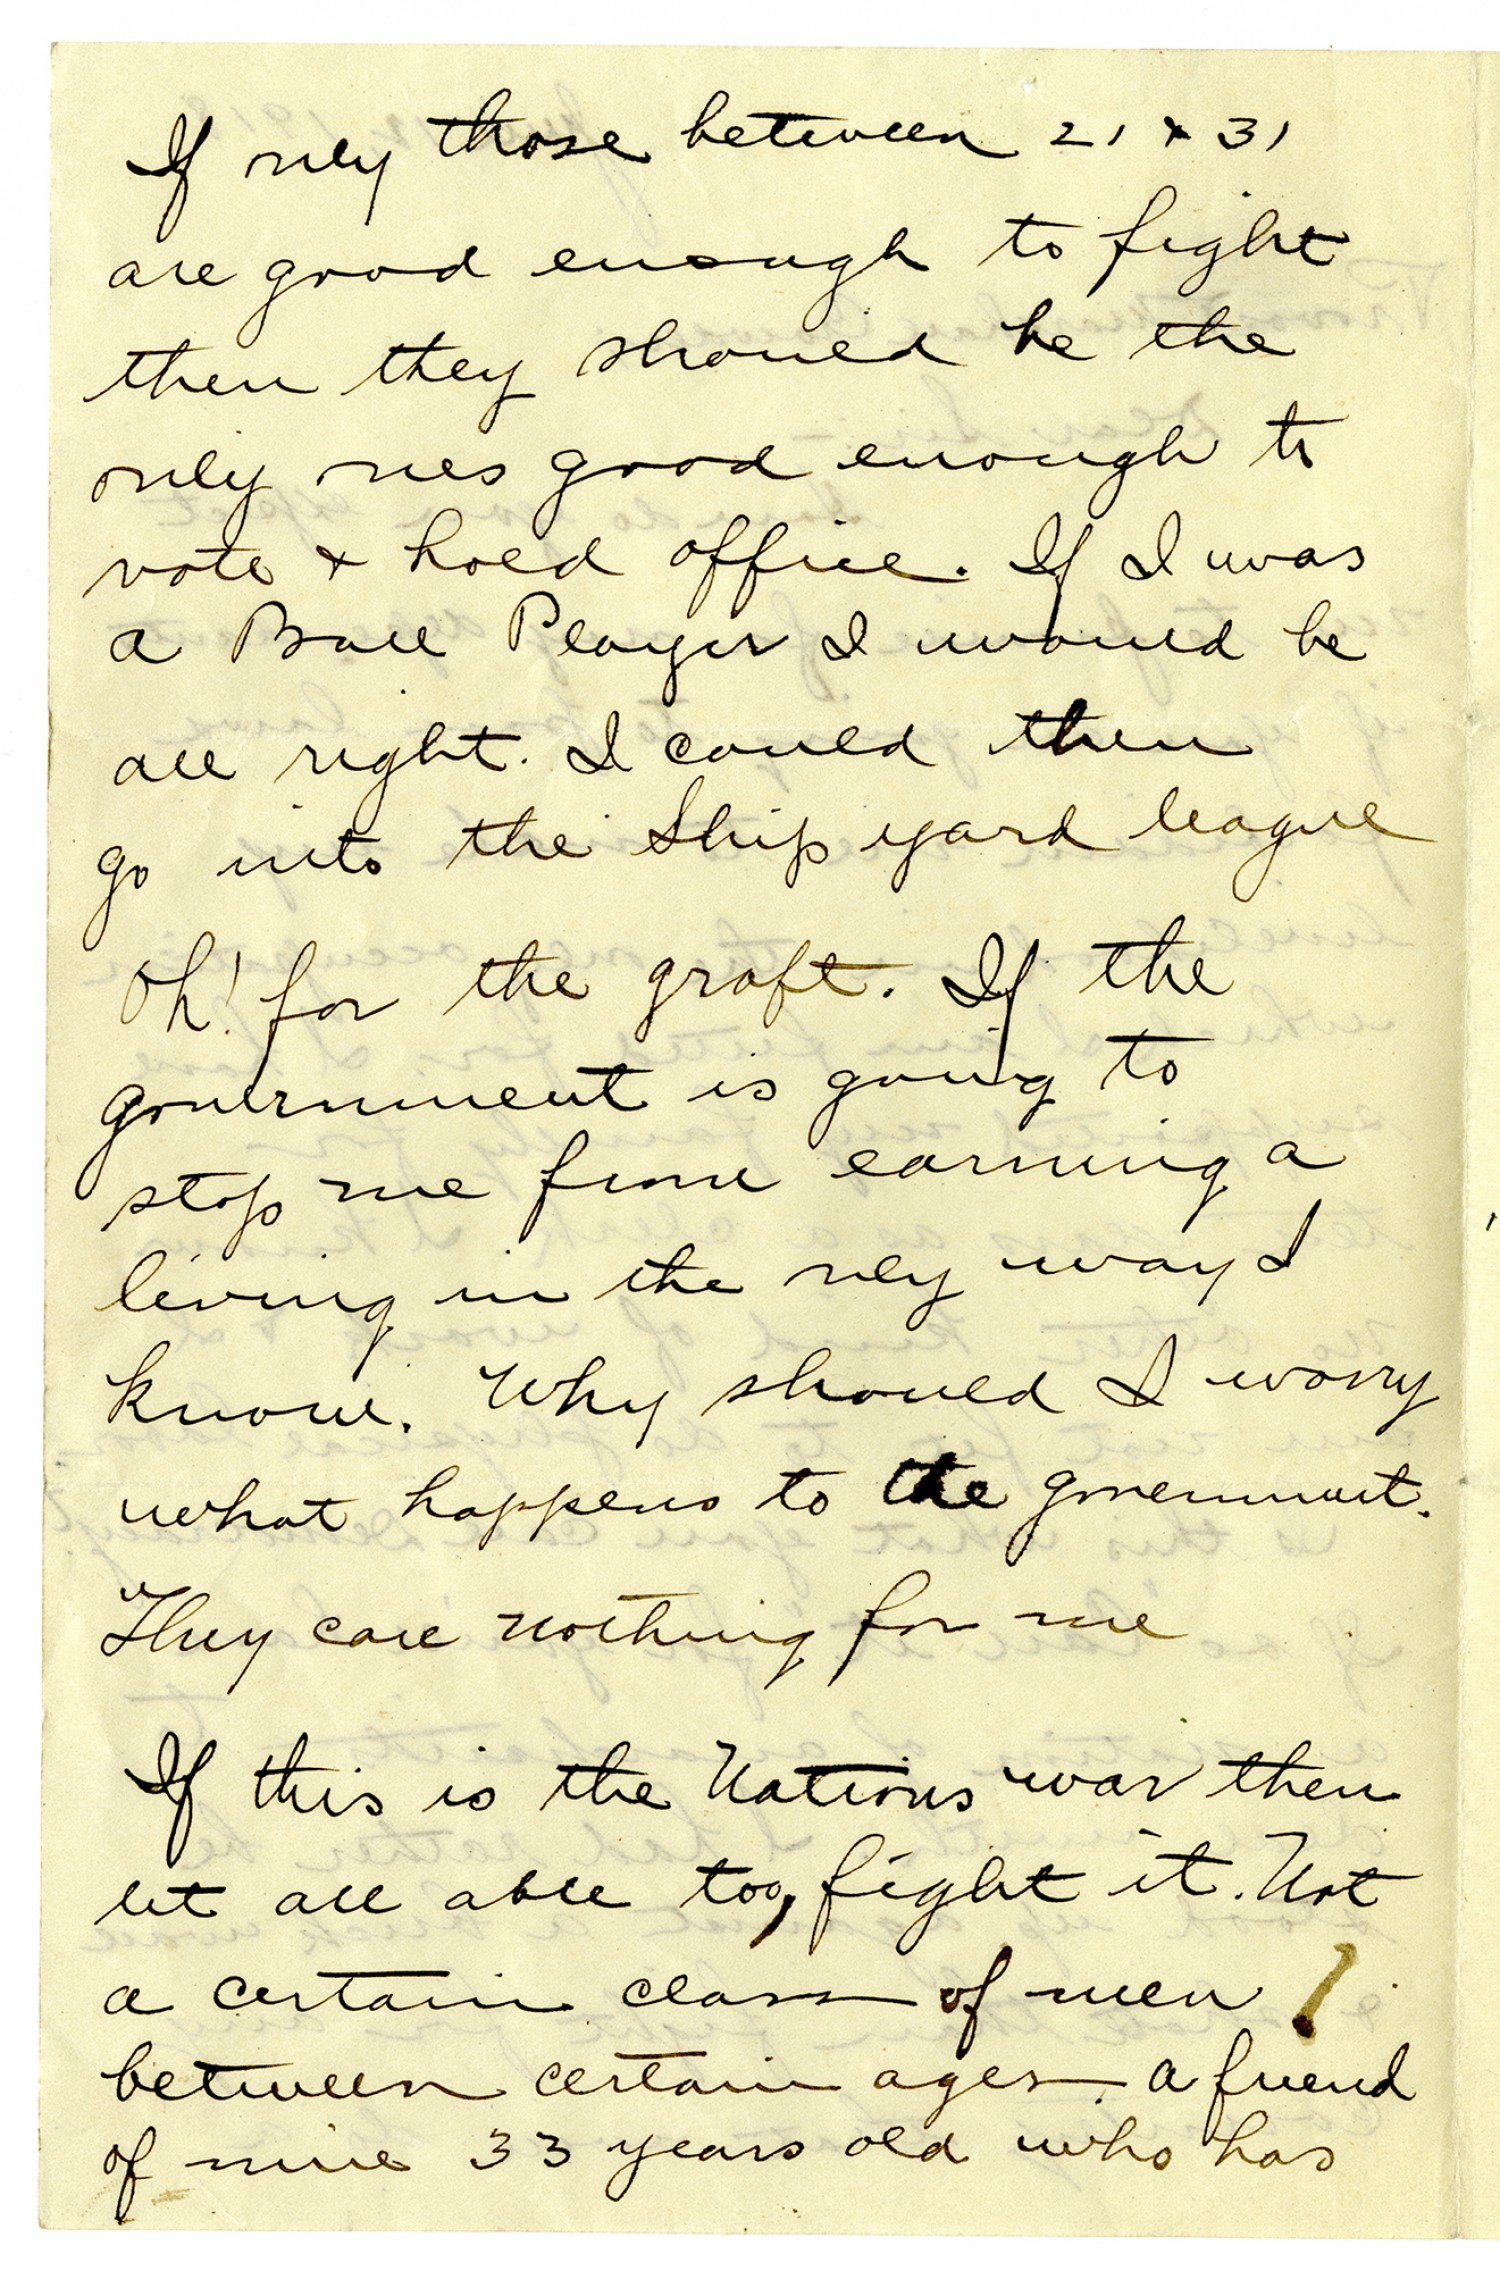 If only those between 21 & 31
are good enough to fight
then they should be the
only ones good enough to
vote & hold office. If I was
a Ball Player I would be
all right. I could then
go into the Ship yard league
Oh! for the graft. If the
government is going to
stop me from earning a
living in the only way I
know. Why should I worry
what happens to the government.
They care nothing for me
If this is the Nations war then
let all able too, fight it. Not
a certain class of men
between certain ages. A friend
of mine 33 years old who has